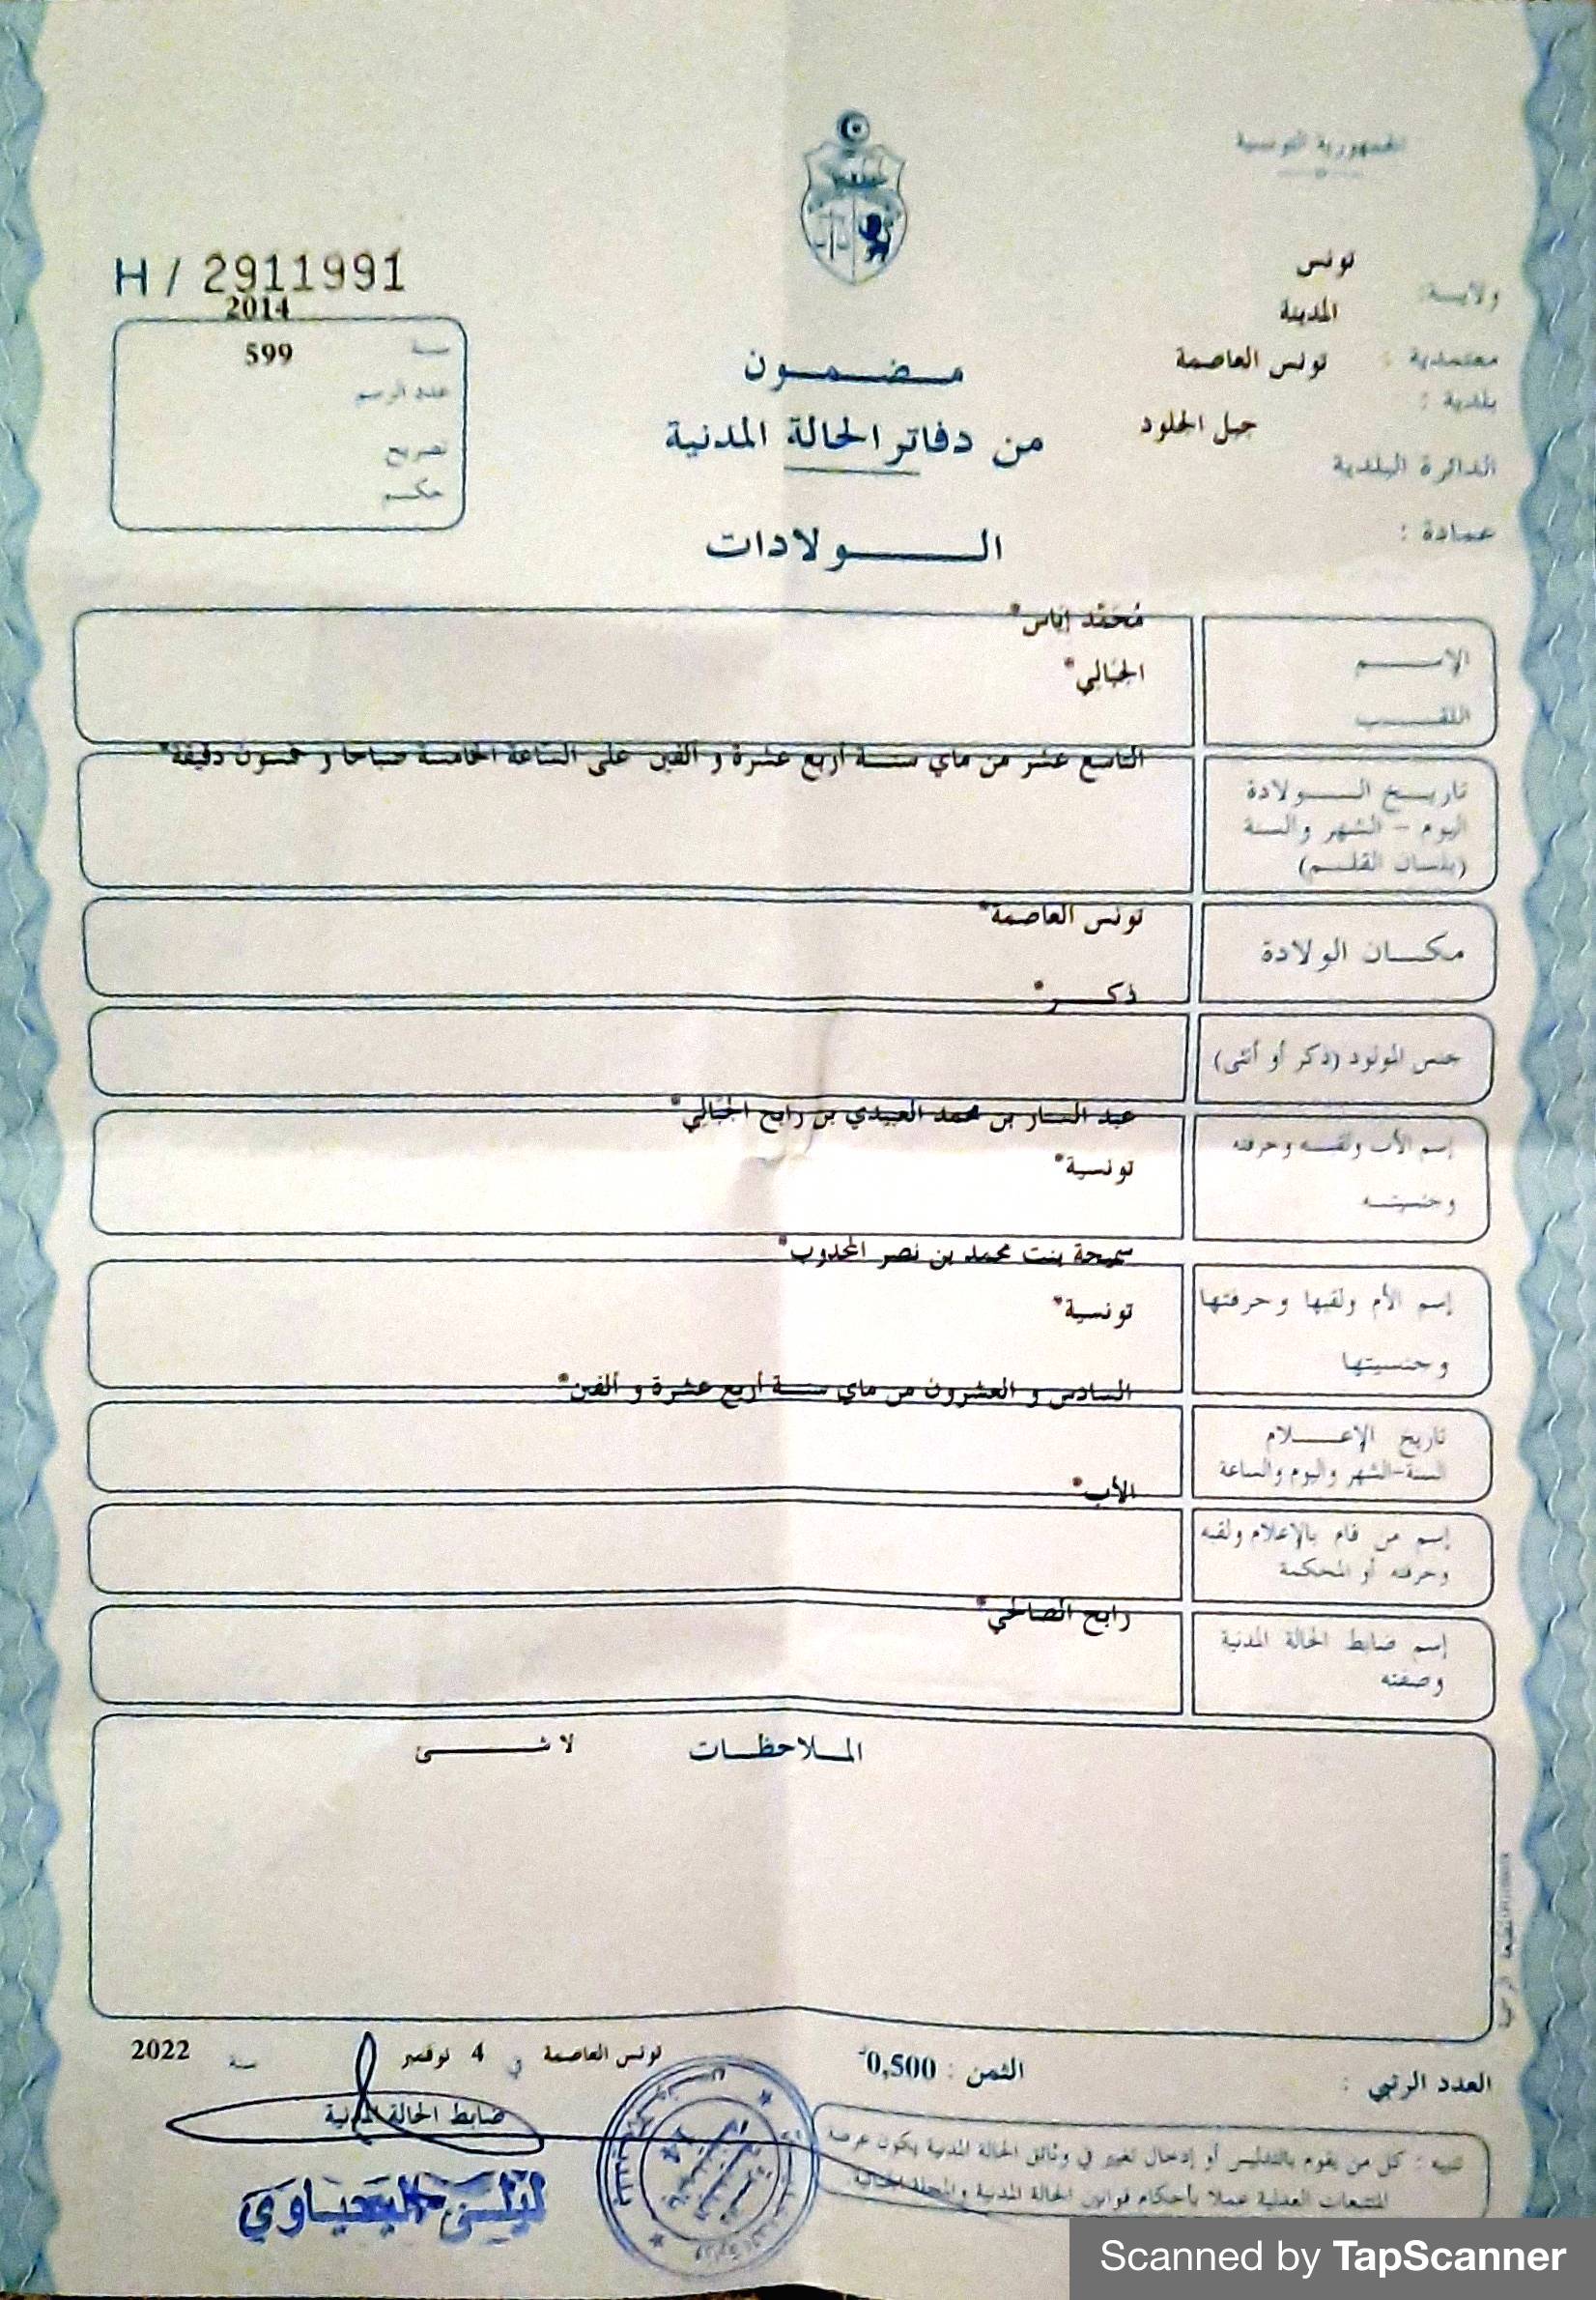 الجمهورية التونسية
ولاية: تونس
المدينة
معتمدية : تونس العاصمة
بلدية :
جبل الجلود
الدائرة البلدية
عمادة :
H / 2911991
2014
سنة 599
عدد الرسم
تصريح
حكم
مضمون
من دفاتر الحالة المدنية
الولادات
مُحَمَّد إيَاس*
الإسم
الجبَالِي*
اللقب
التاسع عشر من ماي سنة أربع عشرة و ألفين على الساعة الخامسة صباحا و خمسون دقيقة*
تاريخ الولادة
اليوم - الشهر والسنة
(بلسان القلم)
تونس العاصمة*
مكان الولادة
ذكر*
جنس المولود (ذكر أو أنثى)
عبد الستار بن محمد العبيدي بن رابح الجبَالِي*
إسم الأب ولقبه وحرفته
تونسية*
وجنسيته
سميحة بنت محمد بن نصر المجدوب*
إسم الأم ولقبها وحرفتها
تونسية*
وجنسيتها
السادس و العشرون من ماي سنة أربع عشرة و ألفين*
تاريخ الإعلام
السنة-الشهر واليوم والساعة
الأب*
إسم من قام بالإعلام ولقبه
وحرفته أو المحكمة
رابح الصالحي*
إسم ضابط الحالة المدنية
وصفته
الملاحظات لا شئ
العدد الرتبي :
الثمن : 0,500
تونس العاصمة في 4 نوفمبر سنة 2022
ضابط الحالة المدنية
تنبيه : كل من يقوم بالتدليس أو إدخال تغيير في وثائق الحالة المدنية يكون عرضة
للتتبعات العدلية عملا بأحكام قوانين الحالة المدنية والمجلة الجنائية
ليلى اليحياوي
Scanned by TapScanner